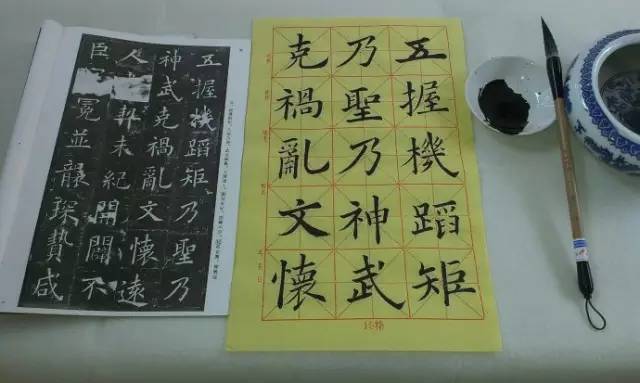 五握機蹈矩乃聖乃
神武克禍亂文懷遠
人契未紀開闢不
臣冕並襲琛贄咸
五握機蹈矩
乃聖乃神武
克禍亂文懷